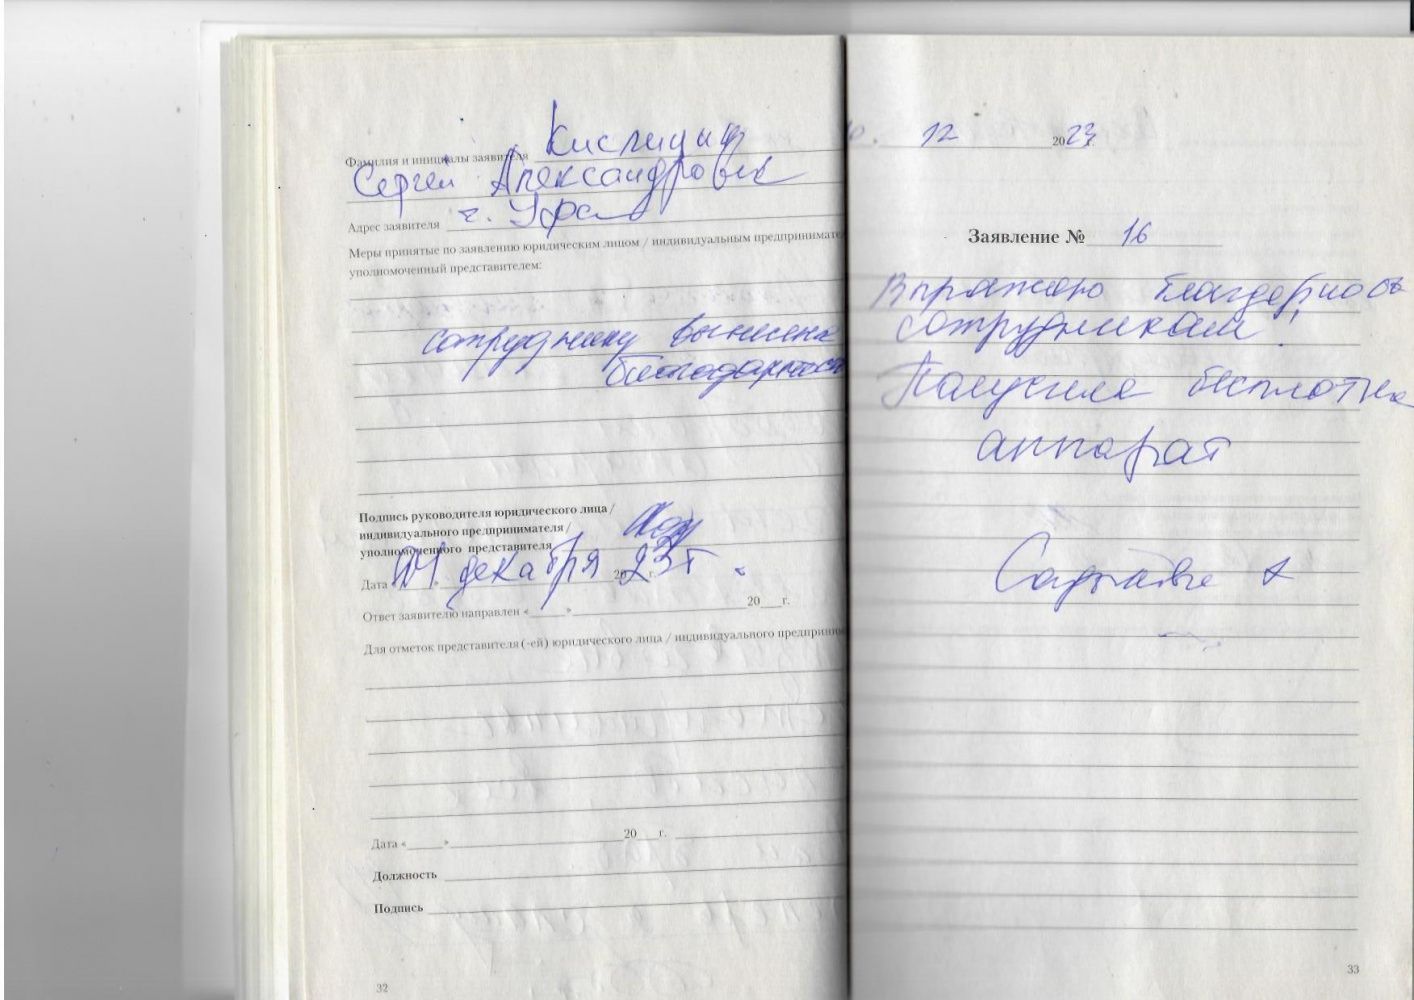 Фамилия и инициалы заявителя Кислицин
Сергей Александрович
Адрес заявителя г. Уфа
Меры принятые по заявлению юридическим лицом / индивидуальным предпринимате
уполномоченный представителем:
сотруднику вынесена
благодарность
Подпись руководителя юридического лица /
индивидуального предпринимателя /
уполномоченного представителя
Дата « 01 » декабря 20 23 г.
Ответ заявителю направлен «____»____ 20___г.
Для отметок представителя (-ей) юридического лица / индивидуального предприним
Дата «____»____ 20___г.
Должность
Подпись
32
12 2023
Заявление № 16
Выражаю благодарность
сотрудникам!
Получила бесплатно
аппарат
33